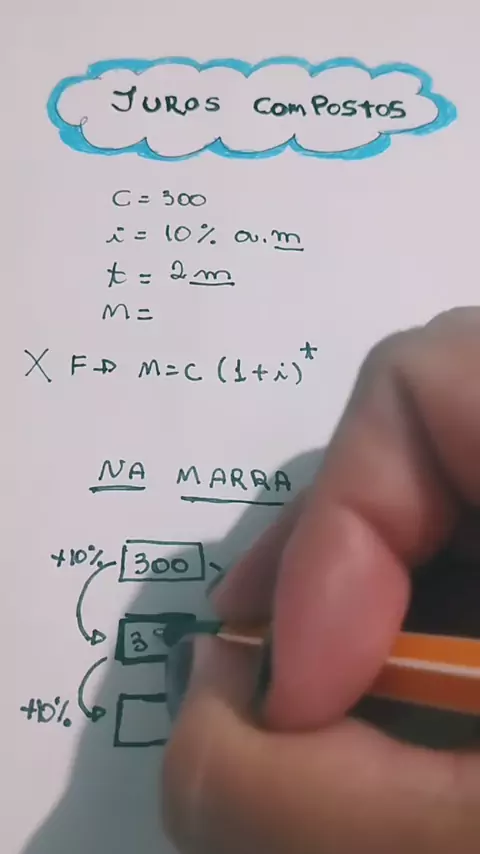 JUROS COMPOSTOS
C = 300
i = 10% a.m
t = 2m
M =
X F→ M=C (1+i)^t
NA MARRA
+10% 300
3
+10%